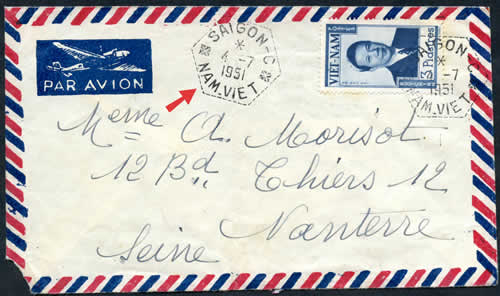 PAR AVION
SAIGON-C
4-7
1951
NAM.VIET
VIET-NAM
3 Piastres
GON-C
-7
1951
NAM.VIET
Meme A. Morisot
12 Bd Thiers 12
Nanterre
Seine